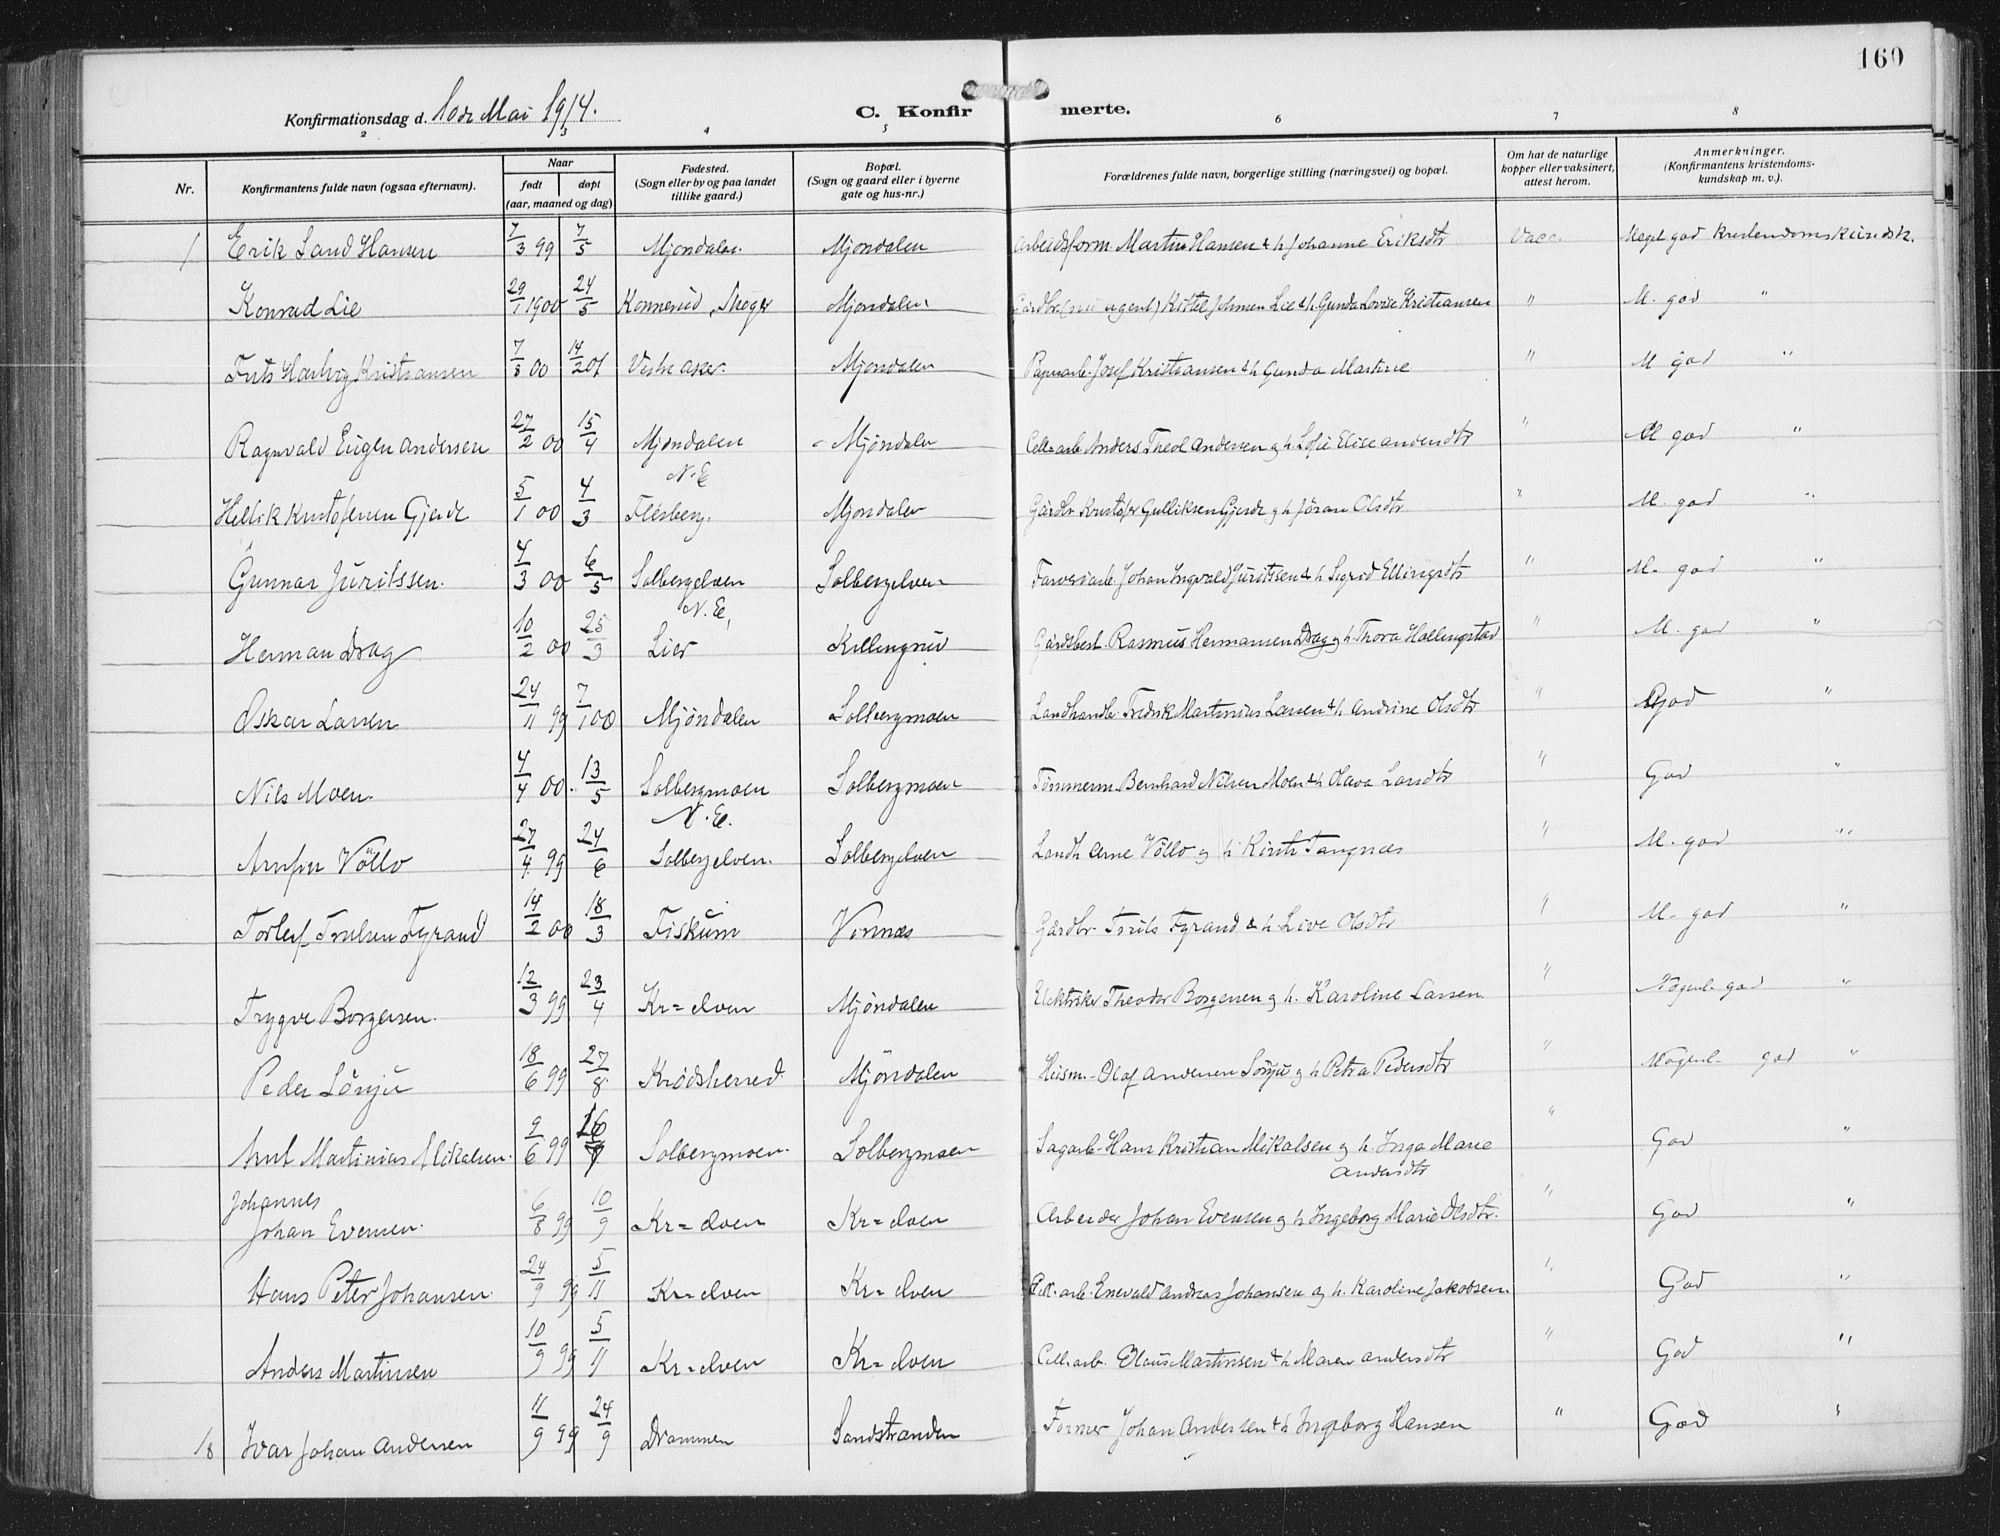 160
Konfirmationsdag d. 10de Mai 1914. C. Konfir merte.
2 3 4 5 6 7 8
Nr. Konfirmantens fulde navn (ogsaa efternavn). Naar født døpt (aar, maaned og dag) Fødested. (Sogn eller by og paa landet tillike gaard.) Bopæl. (Sogn og gaard eller i byerne gate og hus-nr.) Forældrenes fulde navn, borgerlige stilling (næringsvei) og bopæl. Om hat de naturlige kopper eller vaksinert, attest herom. Anmerkninger. (Konfirmantens kristendoms- kundskap m. v.).
1 Erik Sand Hansen 7/3 99 7/5 Mjøndalen. Mjøndalen Arbeidsform. Martin Hansen & h Johanne Eriksdtr Vacc. Meget god kristendomskundsk.
Konrad Lie 29/1 1900 24/5 Konnerud, Skoger Mjøndalen Gårdbr. (nu agent) Kittel Johnsen Lie & h. Gunda Lovise Kristiansen " M. god "
Frits Hartvig Kristiansen 7/8 00 14/2 01 Vestre Aker. Mjøndalen Papirarb. Josef Kristiansen & h Gunda Martine " M god "
Ragnvald Eugen Andersen 27/2 00 15/4 Mjøndalen N.E Mjøndalen Cell-arb. Anders Theol Andersen og h Sofie Elise Andersdtr " M god "
Hellik Kristofersen Gjerde 5/1 00 4/3 Flesberg. Mjøndalen Gårdbr Kristofer Gulliksen Gjerde og h Jøran Olsdtr " M. god "
Gunnar Juritssen. 4/3 00 6/5 Solbergelven N.E. Solbergelven Farveriarb. Johan Ingvald Juritssen & h Sigrid Ellingsdtr " M. god "
Herman Drag 10/2 00 25/3 Lier Killingrud Gårdsbest. Rasmus Hermansen Drag og h. Thora Hellingstad " M. god "
Oskar Larsen 24/11 99 7/1 00 Mjöndalen Solbergmoen Landhandler Fredrik Martinius Larsen & h. Andrine Olsdtr " God "
Nils Moen. 4/4 00. 13/5 Solbergmoen N.E. Solbergmoen Tømmerm. Bernhard Nilsen Moen & h Olava Larsdtr " God "
Völlo 27/4 99 24/6 Solbergelven. Solbergelven Landh Arne Völlo og h Tangnæs " M. god "
Torleif Trulsen Fyrand 14/2 00 18/3 Fiskum Vinnæs Gårdbr Truls Fyrand & h. Live Olsdtr " M. god "
Trygve Borgersen. 12/3 99 23/4 Kr=elven Mjöndalen Elektriker Theodor Borgersen og h. Karoline Larsen " Nogenl. god "
Peder Sönju 18/6 99 27/8 Krødsherred. Mjöndalen Husm. Olaf Andersen Sönju og h Petra Pedersdtr " Nogenl. god "
Arnt Martinius Mikalsen. 9/6 99 16/7 Solbergmoen. Solbergmoen Sagarb. Hans Kristian Mikalsen og h. Inga Marie Andersdtr " God "
Johannes
Johan Evensen. 6/8 99 10/9 Kr=elven Kr=elven Arbeider Johan Evensen og h Ingeborg Marie Olsdtr. " God "
Hans Peter Johansen. 24/9 99 5/11 Kr=elven Kr=elven Cell. arb. Enevald Andreas Johansen og h. Karoline Jakobsen. " God "
Anders Martinsen 10/9 99 5/11 Kr=elven Kr=elven Cell. arb. Olaus Martinsen & h Maren Andersdtr " God "
18 Ivar Johan Andersen 11/9 99 24/9 Drammen Sandstranden Former Johan Andersen & h Ingeborg Hansen " God "